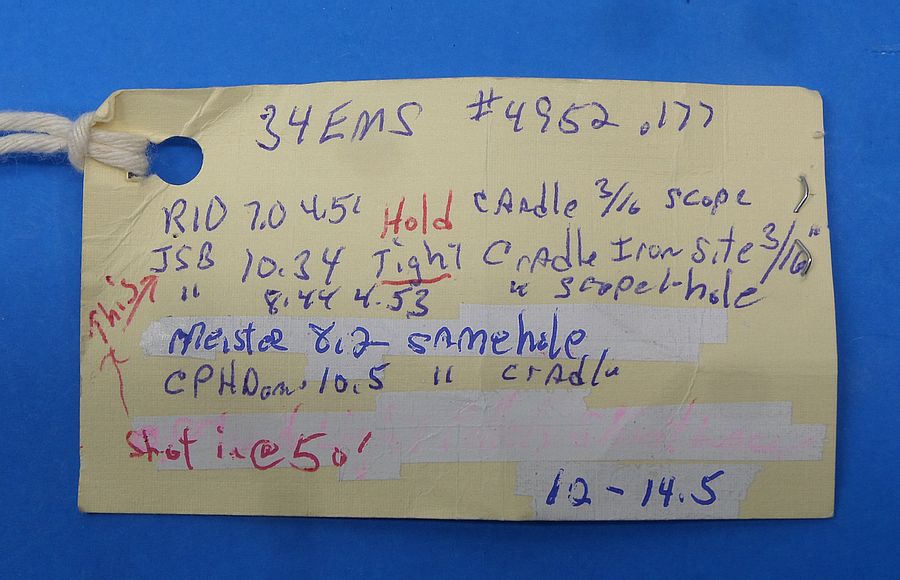 34 EMS #4952 .177
R10 7.0 4.51 Hold cradle 3/16 scope
JSB 10.34 Tight Cradle Iron Site 3/16"
This " 8.44 4.53 " scope 1-hole
Meister 8.2 same hole
CPHDom. 10.5 " cradle
Shot in @ 50'
12 - 14.5